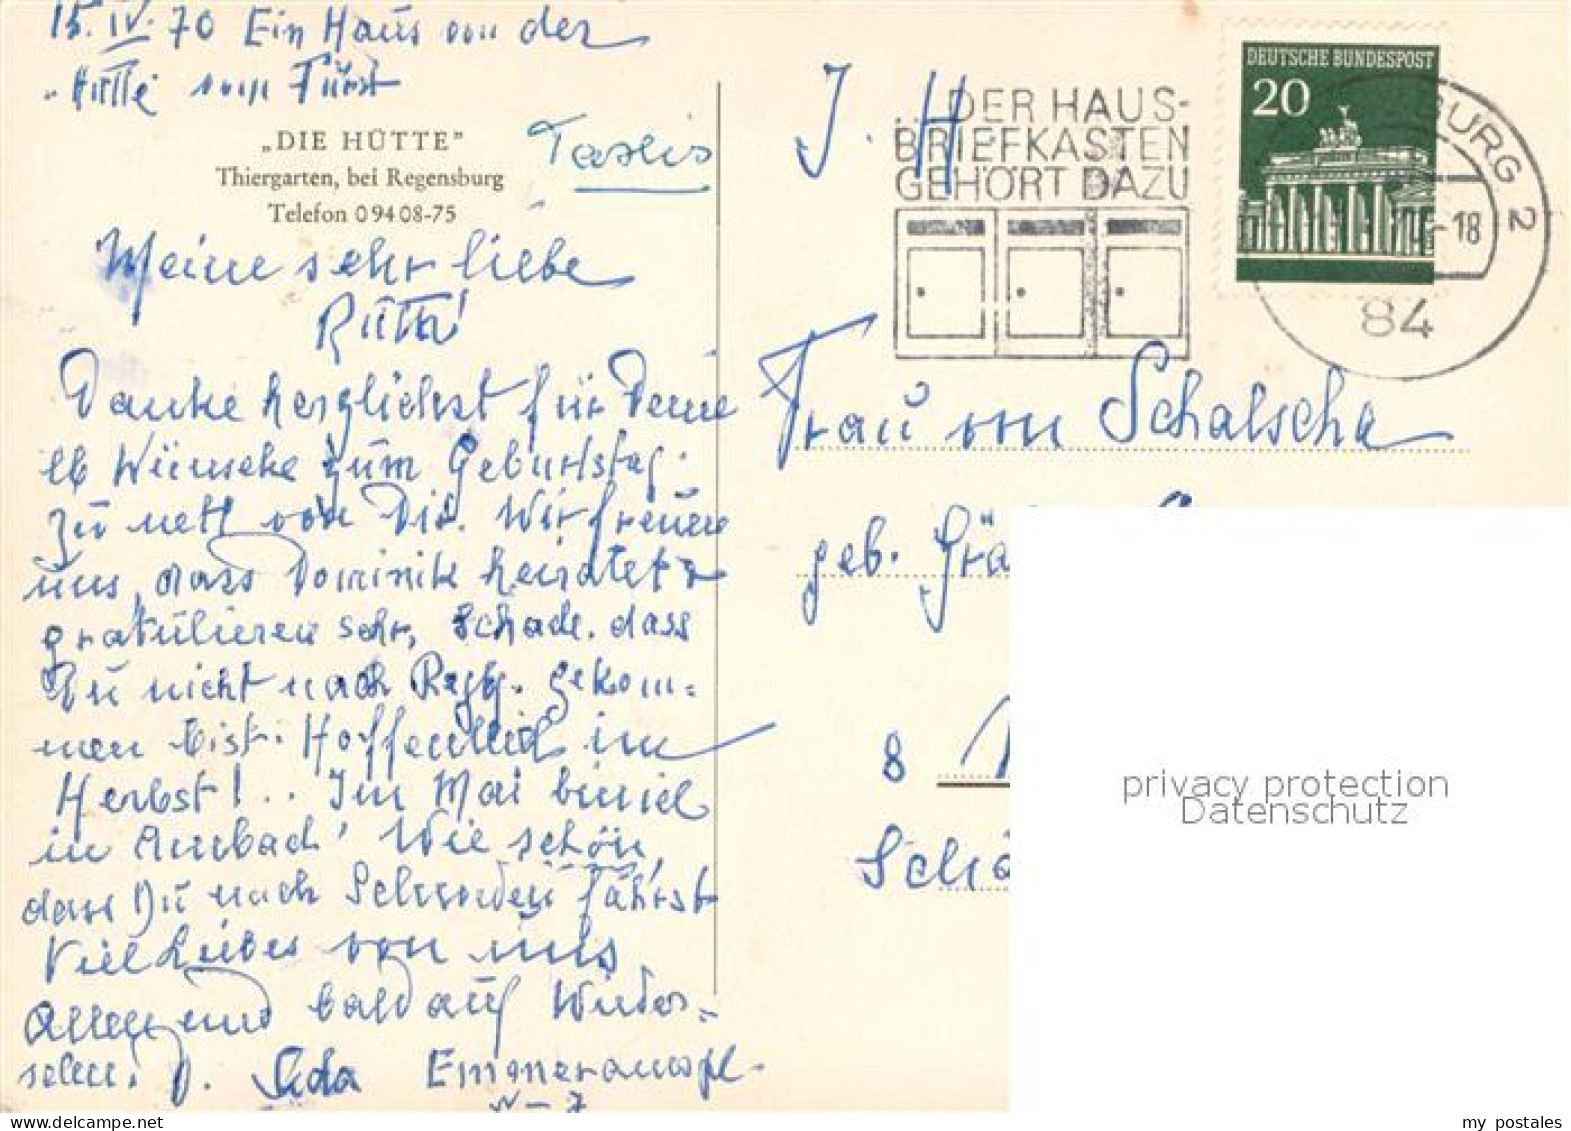 15. IV. 70 Ein Haus von der
Hütte vom Fürst
Taxis
„DIE HÜTTE”
Thiergarten, bei Regensburg
Telefon 0 94 08-75
Meine sehr liebe
Ruth!
Danke herzlichst für Deine
lb Wünsche zum Geburtstag.
Zu nett von Dir. Wir freuen
uns, dass Dominik heiratet &
gratulieren sehr, Schade, dass
Du nicht nach Regbg. gekom=
men bist. Hoffentlich im
Herbst! .. Im Mai bin ich
in Aumbach! Wie schön,
dass Du nach Schweden fährst
Viel Liebes von uns
Allen und bald auf Wieder=
sehen! D. Emmeramspl.
J. H.
...DER HAUS-
BRIEFKASTEN
GEHÖRT DAZU
DEUTSCHE BUNDESPOST
20
BURG 2
-18
84
Frau von Schalscha
geb. Grä
8
Schö
privacy protection
Datenschutz
www.delcampe.net
my_postales